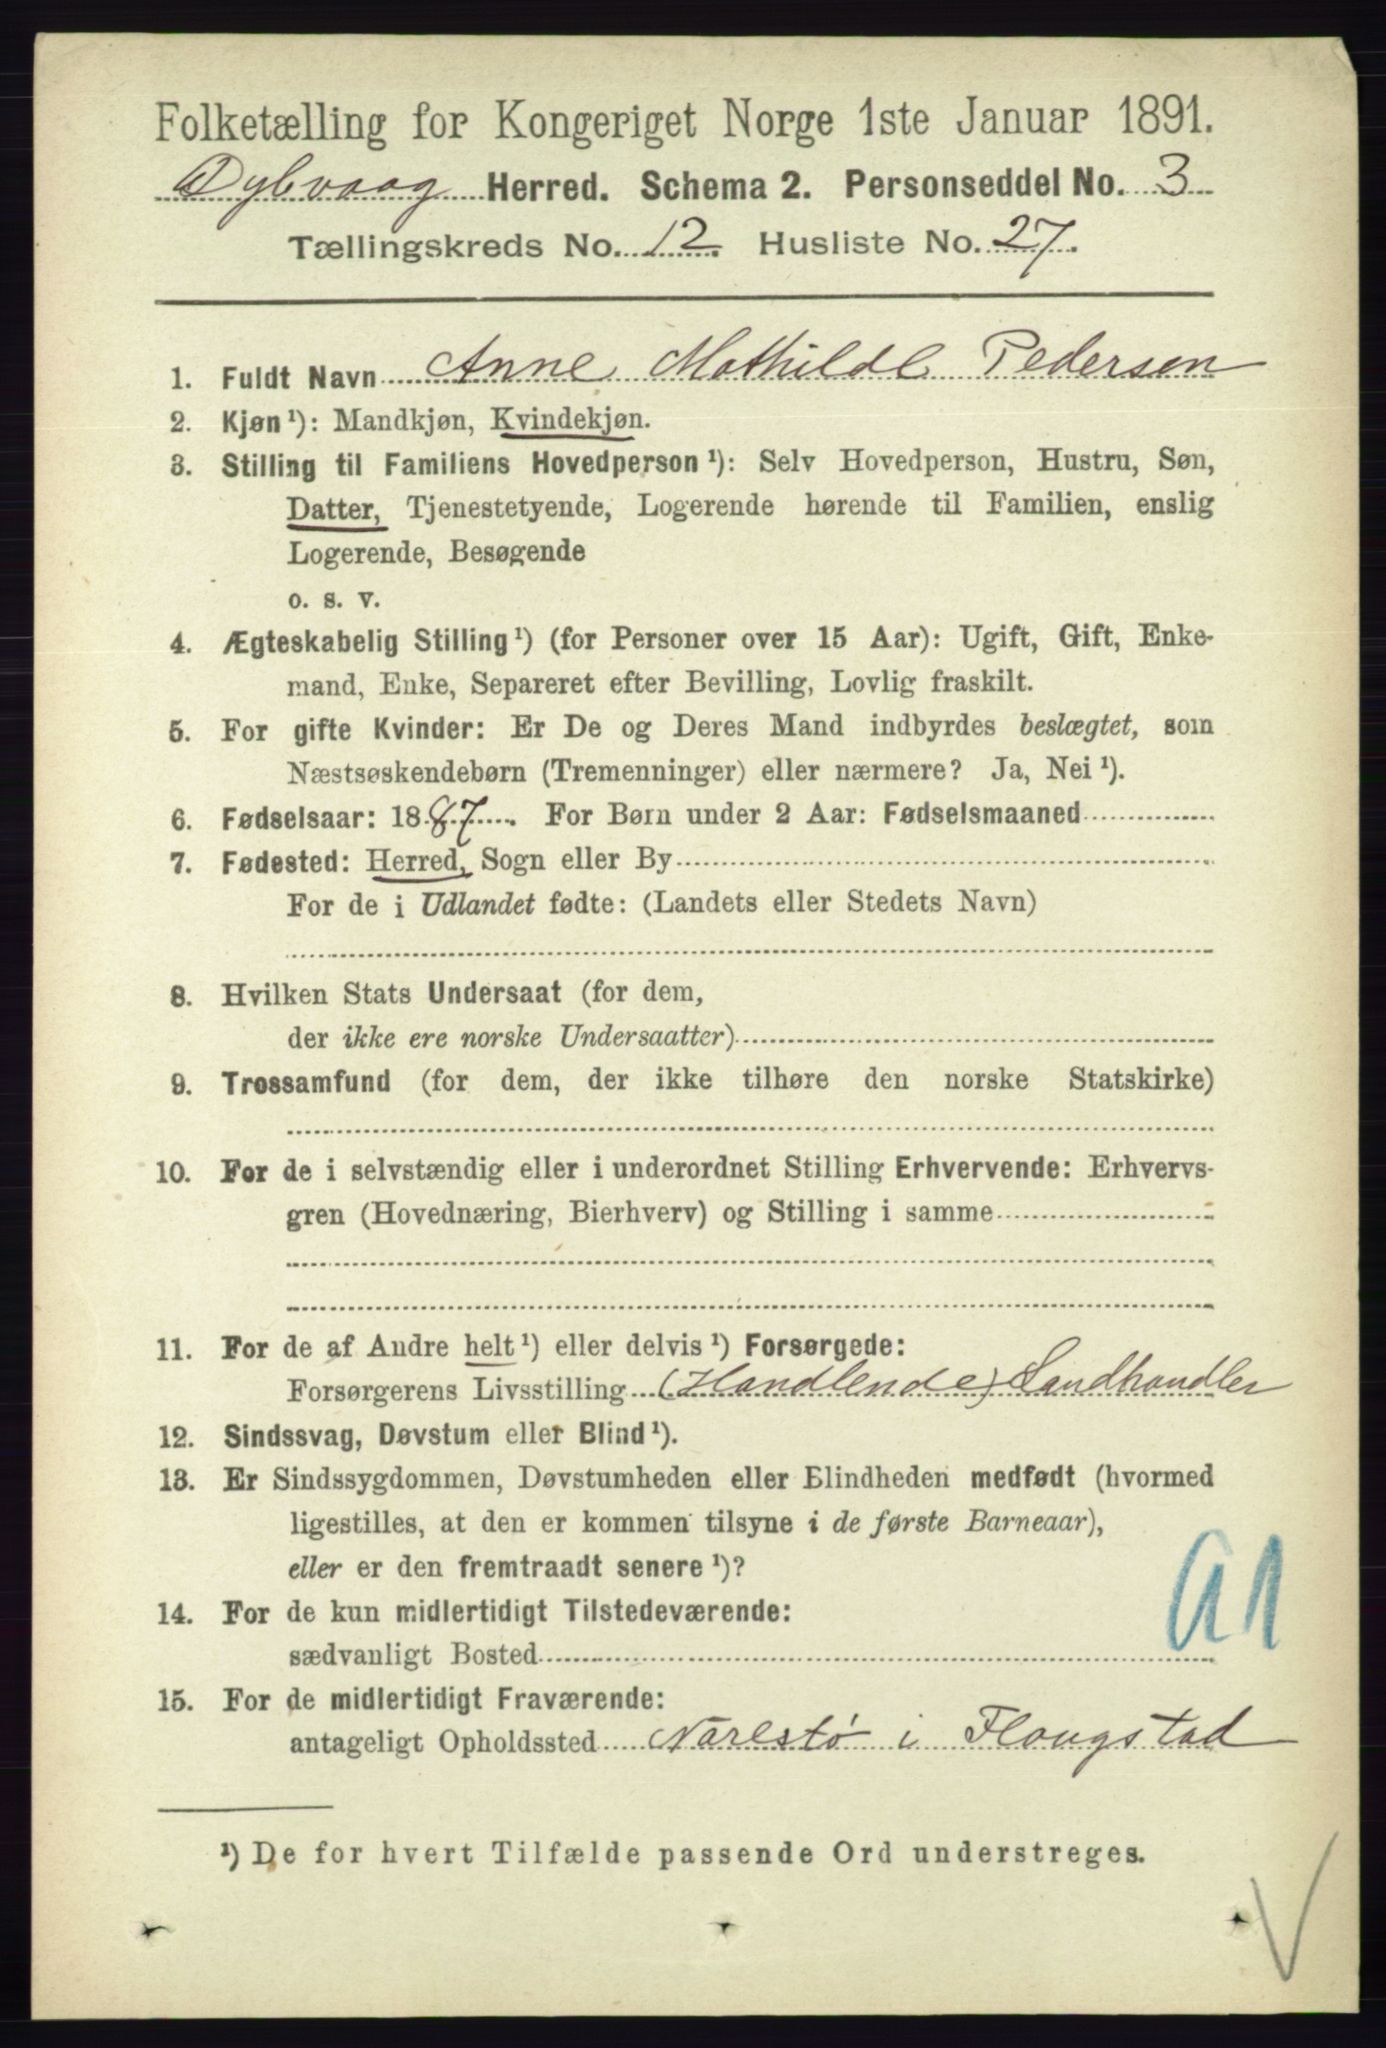 Folketælling for Kongeriget Norge 1ste Januar 1891.
Dybvaag Herred. Schema 2. Personseddel No. 3
Tællingskreds No. 12. Husliste No. 27.
1. Fuldt Navn Anne Mathilde Pedersen
2. Kjøn ¹): Mandkjøn, Kvindekjøn.
3. Stilling til Familiens Hovedperson ¹): Selv Hovedperson, Hustru, Søn,
Datter, Tjenestetyende, Logerende hørende til Familien, enslig
Logerende, Besøgende
o. s. v.
4. Ægteskabelig Stilling ¹) (for Personer over 15 Aar): Ugift, Gift, Enke-
mand, Enke, Separeret efter Bevilling, Lovlig fraskilt.
5. For gifte Kvinder: Er De og Deres Mand indbyrdes beslægtet, som
Næstsøskendebørn (Tremenninger) eller nærmere? Ja, Nei ¹).
6. Fødselsaar: 1887. For Børn under 2 Aar: Fødselsmaaned
7. Fødested: Herred, Sogn eller By
For de i Udlandet fødte: (Landets eller Stedets Navn)
8. Hvilken Stats Undersaat (for dem,
der ikke ere norske Undersaatter)
9. Trossamfund (for dem, der ikke tilhøre den norske Statskirke)
10. For de i selvstændig eller i underordnet Stilling Erhvervende: Erhvervs-
gren (Hovednæring, Bierhverv) og Stilling i samme
11. For de af Andre helt ¹) eller delvis ¹) Forsørgede:
Forsørgerens Livsstilling (Handlende) Landhandler
12. Sindssvag, Døvstum eller Blind ¹).
13. Er Sindssygdommen, Døvstumheden eller Blindheden medfødt (hvormed
ligestilles, at den er kommen tilsyne i de første Barneaar),
eller er den fremtraadt senere ¹)?
14. For de kun midlertidigt Tilstedeværende:
sædvanligt Bosted
a1
15. For de midlertidigt Fraværende:
antageligt Opholdssted Narestø i Flougstad
¹) De for hvert Tilfælde passende Ord understreges.